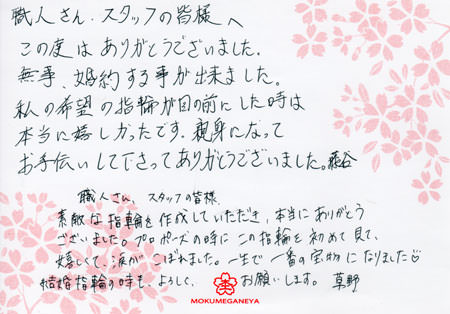 職人さん、スタッフの皆様へ
この度はありがとうございました。
無事、婚約する事が出来ました。
私の希望の指輪が目の前にした時は
本当に嬉しかったです。親身になって
お手伝いして下さってありがとうございました。藤谷
職人さん、スタッフの皆様、
素敵な指輪を作成していただき、本当にありがとう
ございました。プロポーズの時にこの指輪を初めて見て、
嬉しくて、涙がこぼれました。一生で一番の宝物になりました♡
結婚指輪の時も、よろしくお願いします。草野
MOKUMEGANEYA